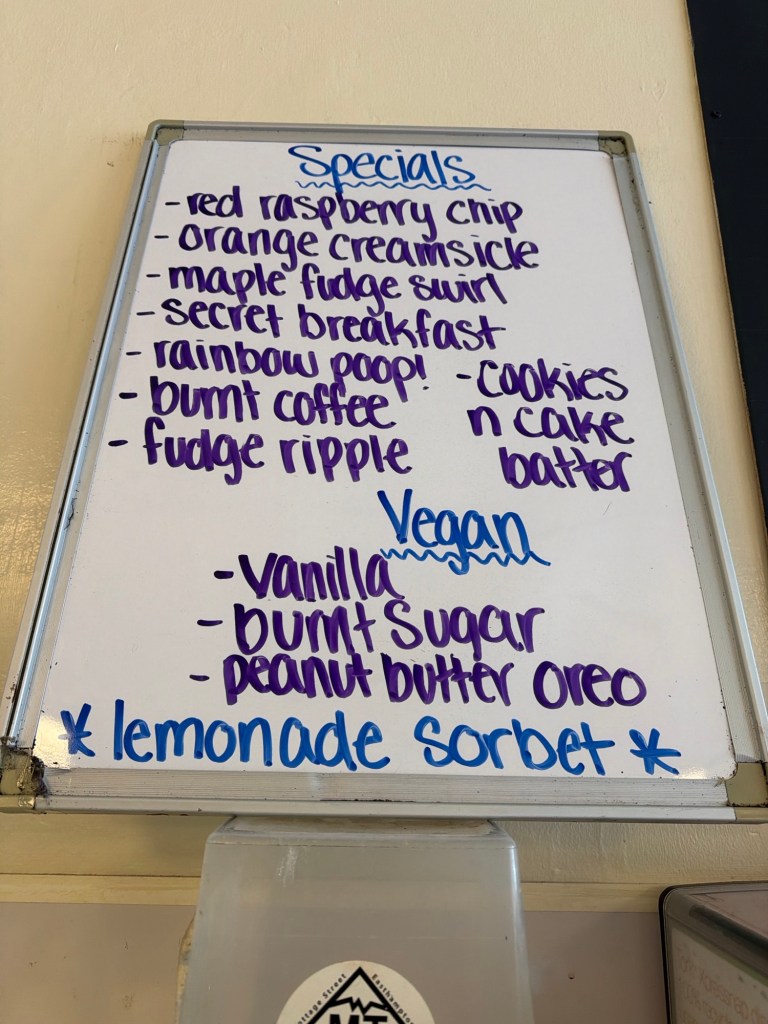 Specials
- red raspberry chip
- orange creamsicle
- maple fudge swirl
- secret breakfast
- rainbow poop!
- burnt coffee
- fudge ripple
- cookies
n cake
batter
Vegan
- vanilla
- burnt sugar
- peanut butter oreo
* lemonade sorbet *
ottage Street Easthampto
MT